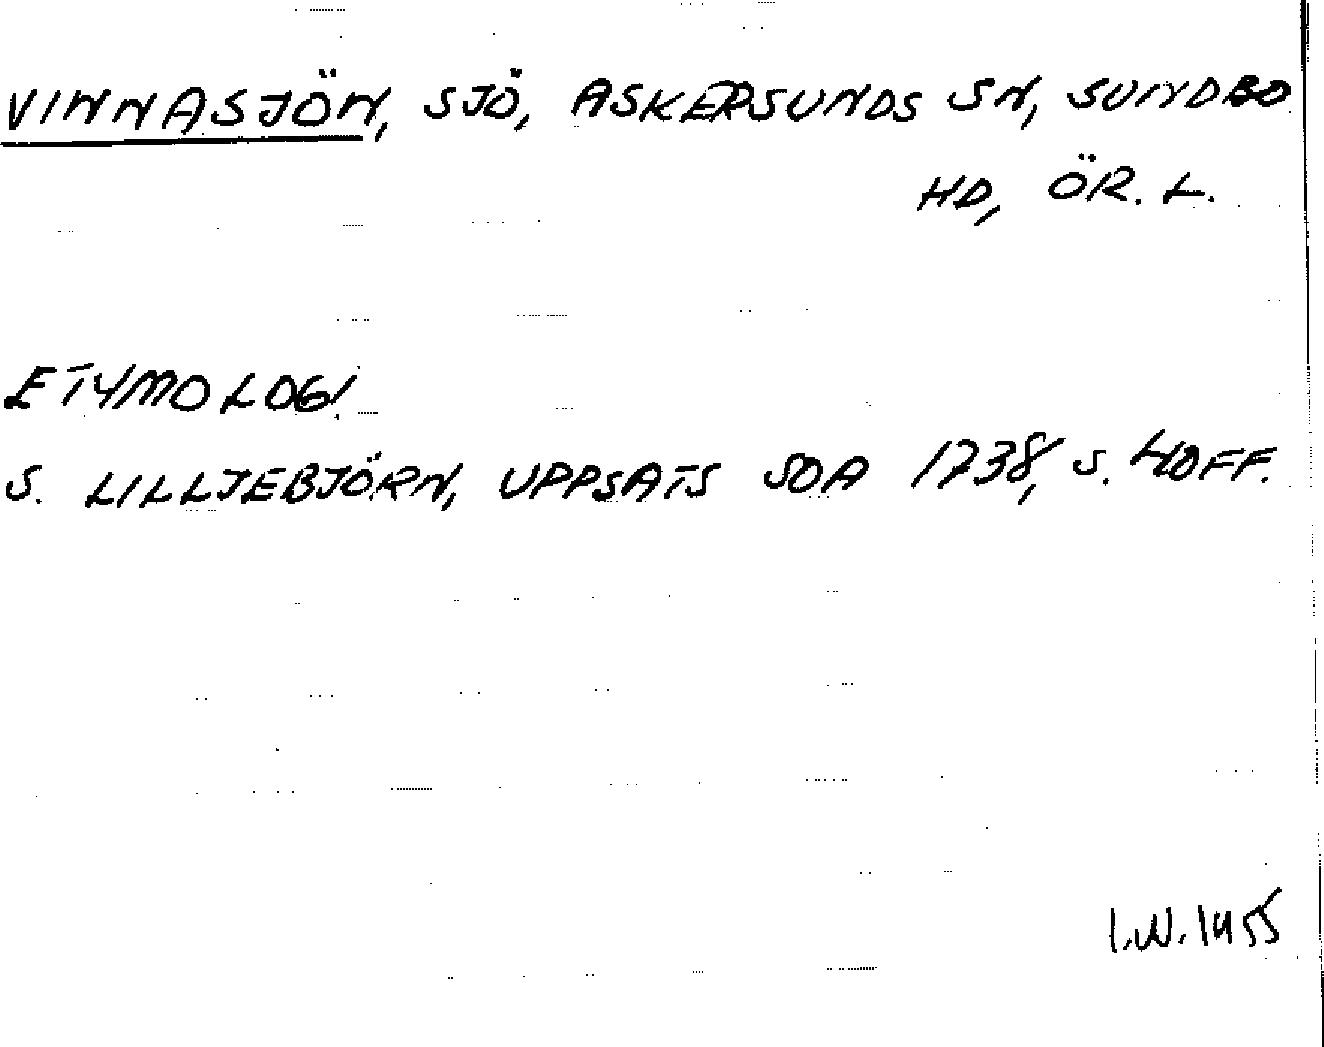 VINNASJÖN, SJÖ, ASKERSUNDS SN, SUNDBO
HD, ÖR. L.
ETYMOLOGI
S. LILLJEBJÖRN, UPPSATS SOA 1738, S. 40FF.
I.W. 1955